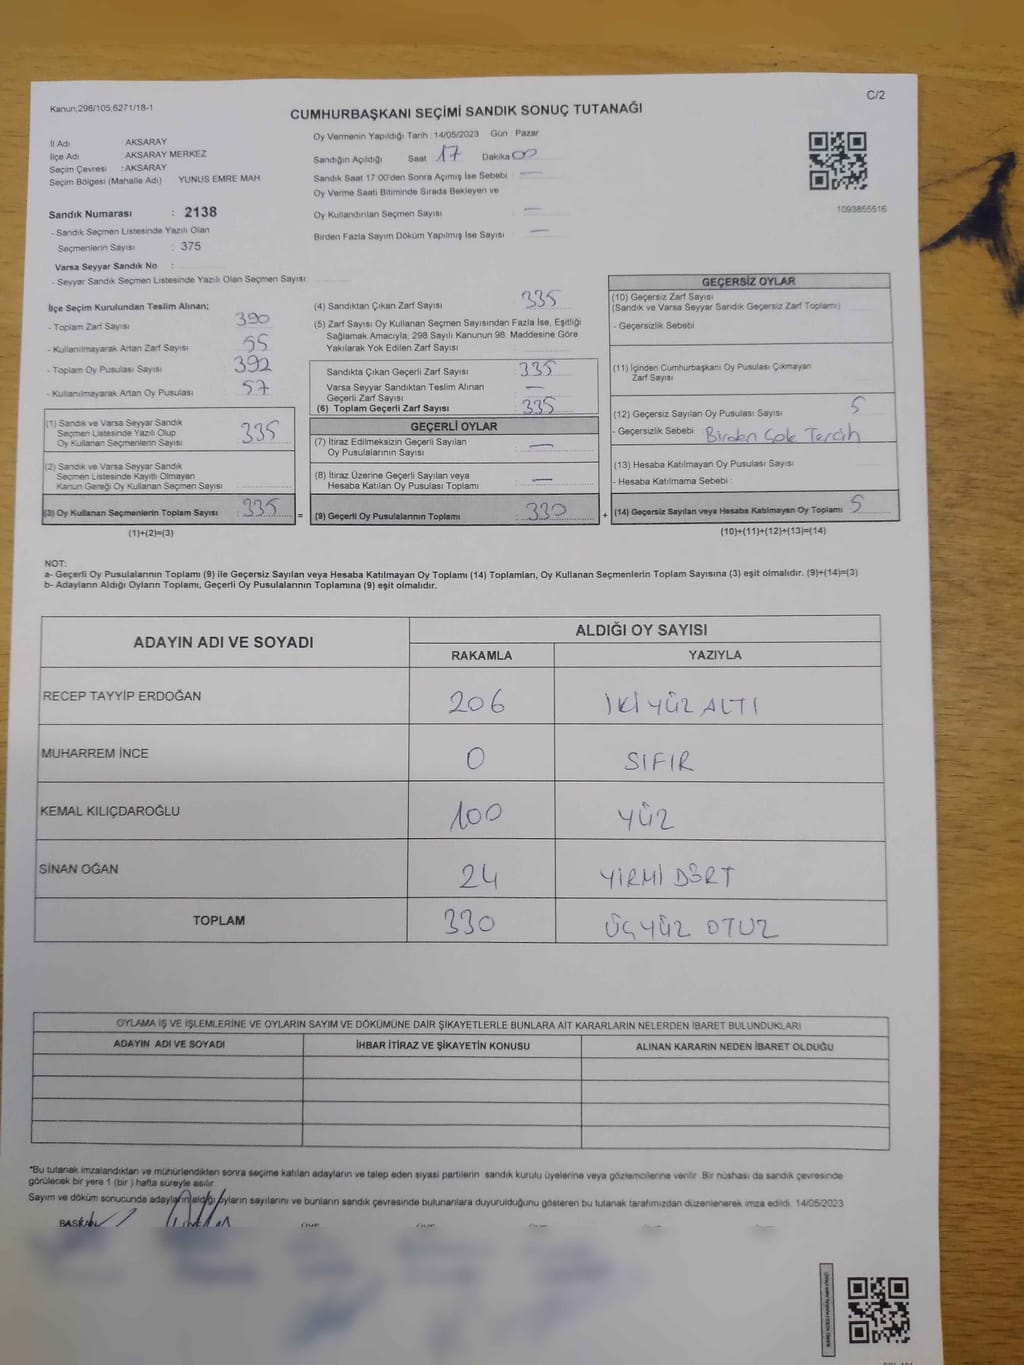 Kanun;298/105;6271/18-1
C/2
CUMHURBAŞKANI SEÇİMİ SANDIK SONUÇ TUTANAĞI
İl Adı AKSARAY
İlçe Adı AKSARAY MERKEZ
Seçim Çevresi : AKSARAY
Seçim Bölgesi (Mahalle Adı) YUNUS EMRE MAH.
Sandık Numarası : 2138
- Sandık Seçmen Listesinde Yazılı Olan
Seçmenlerin Sayısı : 375
Varsa Seyyar Sandık No :
- Seyyar Sandık Seçmen Listesinde Yazılı Olan Seçmen Sayısı
Oy Vermenin Yapıldığı Tarih : 14/05/2023 Gün Pazar
Sandığın Açıldığı Saat 17 Dakika 00
Sandık Saat 17:00'den Sonra Açılmış İse Sebebi —
Oy Verme Saati Bitiminde Sırada Bekleyen ve
Oy Kullandırılan Seçmen Sayısı —
Birden Fazla Sayım Döküm Yapılmış İse Sayısı —
1093855516
İlçe Seçim Kurulundan Teslim Alınan;
- Toplam Zarf Sayısı 390
- Kullanılmayarak Artan Zarf Sayısı 55
- Toplam Oy Pusulası Sayısı 392
- Kullanılmayarak Artan Oy Pusulası 57
(1) Sandık ve Varsa Seyyar Sandık
Seçmen Listesinde Yazılı Olup
Oy Kullanan Seçmenlerin Sayısı 335
(2) Sandık ve Varsa Seyyar Sandık
Seçmen Listesinde Kayıtlı Olmayan
Kanun Gereği Oy Kullanan Seçmen Sayısı
(3) Oy Kullanan Seçmenlerin Toplam Sayısı : 335 =
(1)+(2)=(3)
(4) Sandıktan Çıkan Zarf Sayısı 335
(5) Zarf Sayısı Oy Kullanan Seçmen Sayısından Fazla İse, Eşitliği
Sağlamak Amacıyla; 298 Sayılı Kanunun 98. Maddesine Göre
Yakılarak Yok Edilen Zarf Sayısı
Sandıkta Çıkan Geçerli Zarf Sayısı : 335
Varsa Seyyar Sandıktan Teslim Alınan
Geçerli Zarf Sayısı —
(6) Toplam Geçerli Zarf Sayısı : 335
GEÇERLİ OYLAR
(7) İtiraz Edilmeksizin Geçerli Sayılan
Oy Pusulalarının Sayısı —
(8) İtiraz Üzerine Geçerli Sayılan veya
Hesaba Katılan Oy Pusulası Toplamı —
(9) Geçerli Oy Pusulalarının Toplamı : 330 +
GEÇERSİZ OYLAR
(10) Geçersiz Zarf Sayısı
(Sandık ve Varsa Seyyar Sandık Geçersiz Zarf Toplamı)
- Geçersizlik Sebebi
(11) İçinden Cumhurbaşkanı Oy Pusulası Çıkmayan
Zarf Sayısı
(12) Geçersiz Sayılan Oy Pusulası Sayısı 5
- Geçersizlik Sebebi Birden Çok Tercih
(13) Hesaba Katılmayan Oy Pusulası Sayısı
- Hesaba Katılmama Sebebi :
(14) Geçersiz Sayılan veya Hesaba Katılmayan Oy Toplamı 5
(10)+(11)+(12)+(13)=(14)
NOT:
a- Geçerli Oy Pusulalarının Toplamı (9) ile Geçersiz Sayılan veya Hesaba Katılmayan Oy Toplamı (14) Toplamları, Oy Kullanan Seçmenlerin Toplam Sayısına (3) eşit olmalıdır. (9)+(14)=(3)
b- Adayların Aldığı Oyların Toplamı, Geçerli Oy Pusulalarının Toplamına (9) eşit olmalıdır.
ADAYIN ADI VE SOYADI ALDIĞI OY SAYISI
RAKAMLA YAZIYLA
RECEP TAYYİP ERDOĞAN 206 İKİ YÜZ ALTI
MUHARREM İNCE 0 SIFIR
KEMAL KILIÇDAROĞLU 100 YÜZ
SİNAN OĞAN 24 YİRMİ DÖRT
TOPLAM 330 ÜÇ YÜZ OTUZ
OYLAMA İŞ VE İŞLEMLERİNE VE OYLARIN SAYIM VE DÖKÜMÜNE DAİR ŞİKAYETLERLE BUNLARA AİT KARARLARIN NELERDEN İBARET BULUNDUKLARI
ADAYIN ADI VE SOYADI İHBAR İTİRAZ VE ŞİKAYETİN KONUSU ALINAN KARARIN NEDEN İBARET OLDUĞU
*Bu tutanak imzalandıktan ve mühürlendikten sonra seçime katılan adayların ve talep eden siyasi partilerin sandık kurulu üyelerine veya gözlemcilerine verilir. Bir nüshası da sandık çevresinde
görülecek bir yere 1 (bir) hafta süreyle asılır.
Sayım ve döküm sonucunda adayların aldığı oyların sayılarını ve bunların sandık çevresinde bulunanlara duyurulduğunu gösteren bu tutanak tarafımızdan düzenlenerek imza edildi. 14/05/2023
BAŞKAN